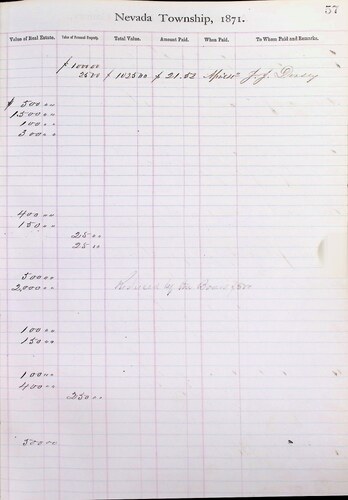 57
Nevada Township, 1871.
Value of Real Estate. Value of Personal Property. Total Value. Amount Paid. When Paid. To Whom Paid and Remarks.
$ 1000 00
25 00 $ 1035 00 $ 21.52 J. J.
$ 500 00
1500 00
100 00
300 00
400 00
150 00
25 00
25 00
500 00
2,000 00 by the
100 00
150 00
100 00
400 00
250 00
500 00